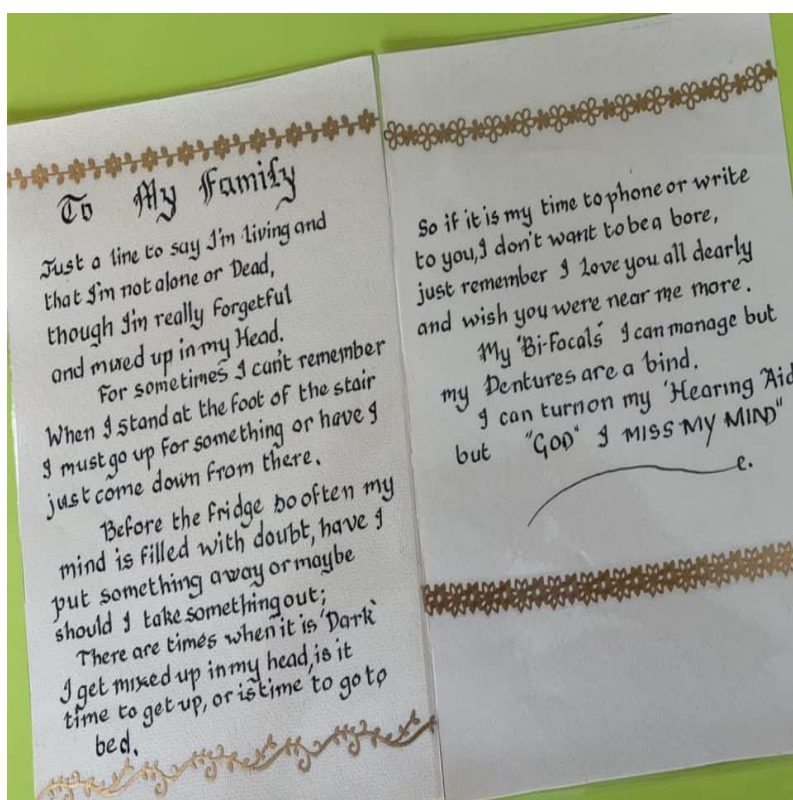 To My Family
Just a line to say I'm living and
that I'm not alone or Dead,
though I'm really forgetful
and mixed up in my Head.
For sometimes I can't remember
When I stand at the foot of the stair
I must go up for something or have I
just come down from there.
Before the fridge so often my
mind is filled with doubt, have I
put something away or maybe
should I take something out;
There are times when it is 'Dark'
I get mixed up in my head, is it
time to get up, or is time to go to
bed.
So if it is my time to phone or write
to you, I don't want to be a bore,
just remember I Love you all dearly
and wish you were near me more.
My 'Bi-Focals' I can manage but
my Dentures are a bind.
I can turn on my 'Hearing Aid
but "GOD" I MISS MY MIND"
e.